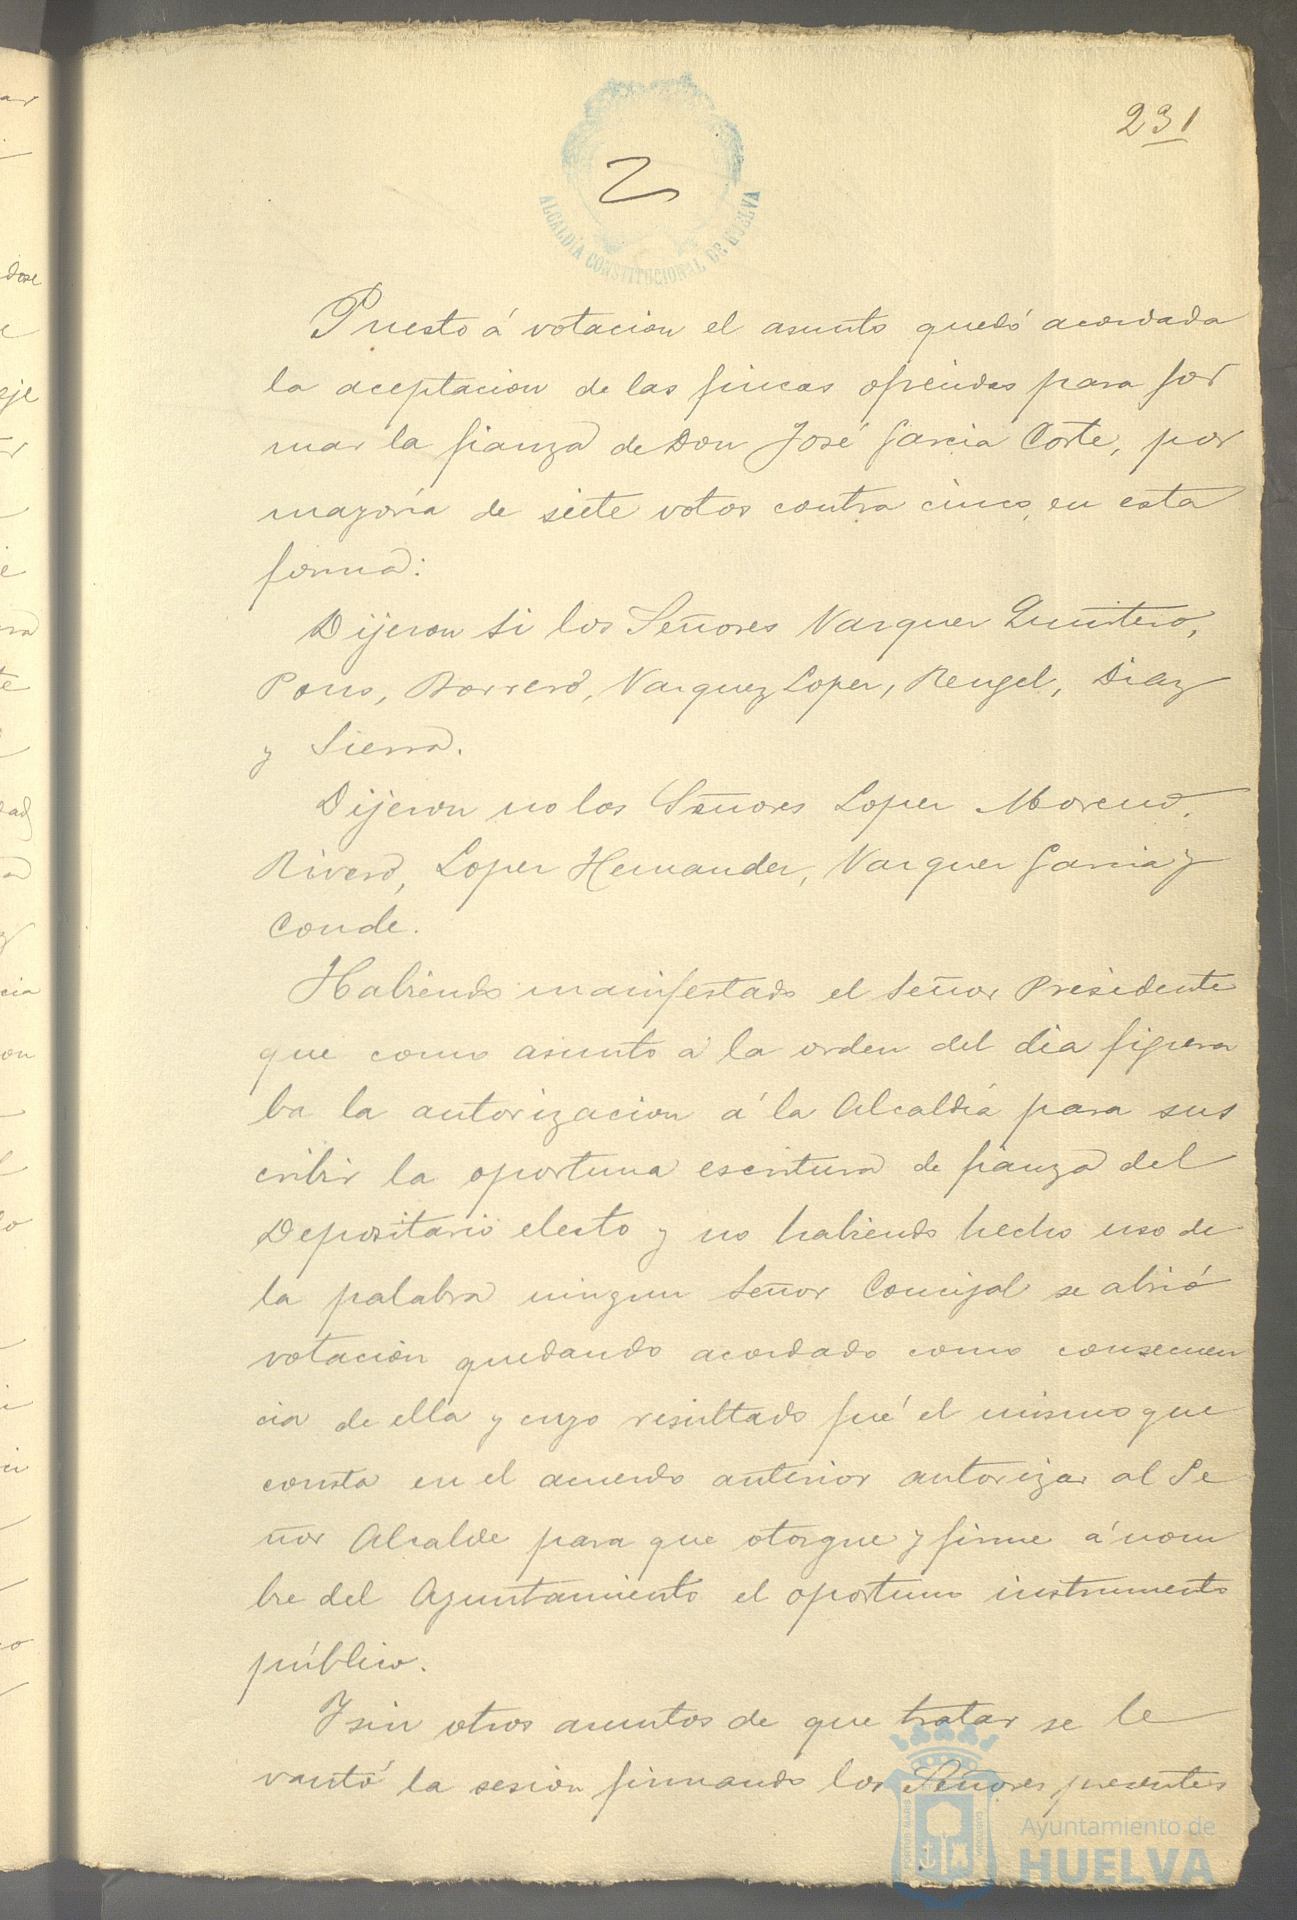 231
ALCALDÍA CONSTITUCIONAL DE HUELVA
Puesto á votacion el asunto quedó acordada
la aceptacion de las fincas ofrecidas para for
mar la fianza de Don José Garcia Corte, por
mayoría de siete votos contra cinco, en esta
forma:
Dijeron si los Señores Vazquez Quintero,
Pons, Borrero, Vazquez Lopez, Rengel, Diaz
y Sierra.
Dijeron no los Señores Lopez Moreno,
Rivero, Lopez Hernandez, Vazquez Garcia y
Conde.
Habiendo manifestado el Señor Presidente
que como asunto a la orden del dia figura
ba la autorizacion á la Alcaldía para sus
cribir la oportuna escritura de fianza del
Depositario electo y no habiendo hecho uso de
la palabra ningun Señor Concejal se abrió
votacion quedando acordado como consecuen
cia de ella y cuyo resultado fué el mismo que
consta en el acuerdo anterior autorizar al Se
ñor Alcalde para que otorgue y firme á nom
bre del Ayuntamiento el oportuno instrumento
público.
Y sin otros asuntos de que tratar se le
vantó la sesion firmando los Señores presentes
Ayuntamiento de
HUELVA